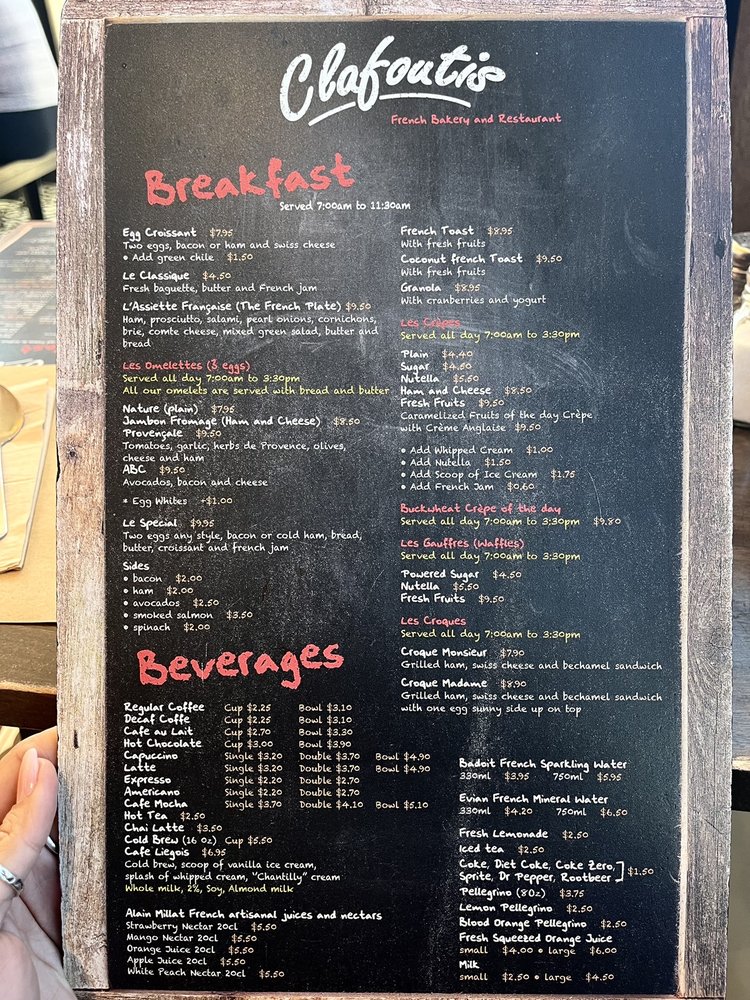 Clafoutis
French Bakery and Restaurant
Breakfast
Served 7:00am to 11:30am
Egg Croissant $7.95
Two eggs, bacon or ham and swiss cheese
• Add green chile $1.50
Le Classique $4.50
Fresh baguette, butter and French jam
L'Assiette Française (The French Plate) $9.50
Ham, prosciutto, salami, pearl onions, cornichons,
brie, comte cheese, mixed green salad, butter and
bread
Les Omelettes (3 eggs)
Served all day 7:00am to 3:30pm
All our omelets are served with bread and butter
Nature (plain) $7.95
Jambon Fromage (Ham and Cheese) $8.50
Provençale $9.50
Tomatoes, garlic, herbs de Provence, olives,
cheese and ham
ABC $9.50
Avocados, bacon and cheese
* Egg Whites +$1.00
Le Special $9.95
Two eggs any style, bacon or cold ham, bread,
butter, croissant and french jam
Sides
• bacon $2.00
• ham $2.00
• avocados $2.50
• smoked salmon $3.50
• spinach $2.00
French Toast $8.95
With fresh fruits
Coconut french Toast $9.50
With fresh fruits
Granola $8.95
With cranberries and yogurt
Les Crêpes
Served all day 7:00am to 3:30pm
Plain $4.40
Sugar $4.50
Nutella $5.50
Ham and Cheese $8.50
Fresh Fruits $9.50
Caramelized Fruits of the day Crêpe
with Crème Anglaise $9.50
• Add Whipped Cream $1.00
• Add Nutella $1.50
• Add Scoop of Ice Cream $1.75
• Add French Jam $0.60
Buckwheat Crêpe of the day
Served all day 7:00am to 3:30pm $9.80
Les Gauffres (Waffles)
Served all day 7:00am to 3:30pm
Powered Sugar $4.50
Nutella $5.50
Fresh Fruits $9.50
Les Croques
Served all day 7:00am to 3:30pm
Croque Monsieur $7.90
Grilled ham, swiss cheese and bechamel sandwich
Croque Madame $8.90
Grilled ham, swiss cheese and bechamel sandwich
with one egg sunny side up on top
Beverages
Regular Coffee Cup $2.25 Bowl $3.10
Decaf Coffe Cup $2.25 Bowl $3.10
Cafe au Lait Cup $2.70 Bowl $3.30
Hot Chocolate Cup $3.00 Bowl $3.90
Capuccino Single $3.20 Double $3.70 Bowl $4.90
Latte Single $3.20 Double $3.70 Bowl $4.90
Expresso Single $2.20 Double $2.70
Americano Single $2.20 Double $2.70
Cafe Mocha Single $3.70 Double $4.10 Bowl $5.10
Hot Tea $2.50
Chai Latte $3.50
Cold Brew (16 oz) Cup $5.50
Cafe Liegois $6.95
Cold brew, scoop of vanilla ice cream,
splash of whipped cream, "Chantilly" cream
Whole milk, 2%, Soy, Almond milk
Alain Millat French artisanal juices and nectars
Strawberry Nectar 20cl $5.50
Mango Nectar 20cl $5.50
Orange Juice 20cl $5.50
Apple Juice 20cl $5.50
White Peach Nectar 20cl $5.50
Badoit French Sparkling Water
330ml $3.95 750ml $5.95
Evian French Mineral Water
330ml $4.20 750ml $6.50
Fresh Lemonade $2.50
Iced tea $2.50
Coke, Diet Coke, Coke Zero,
Sprite, Dr Pepper, Rootbeer $1.50
Pellegrino (8oz) $3.75
Lemon Pellegrino $2.50
Blood Orange Pellegrino $2.50
Fresh Squeezed Orange Juice
small $4.00 • large $6.00
Milk
small $2.50 • large $4.50